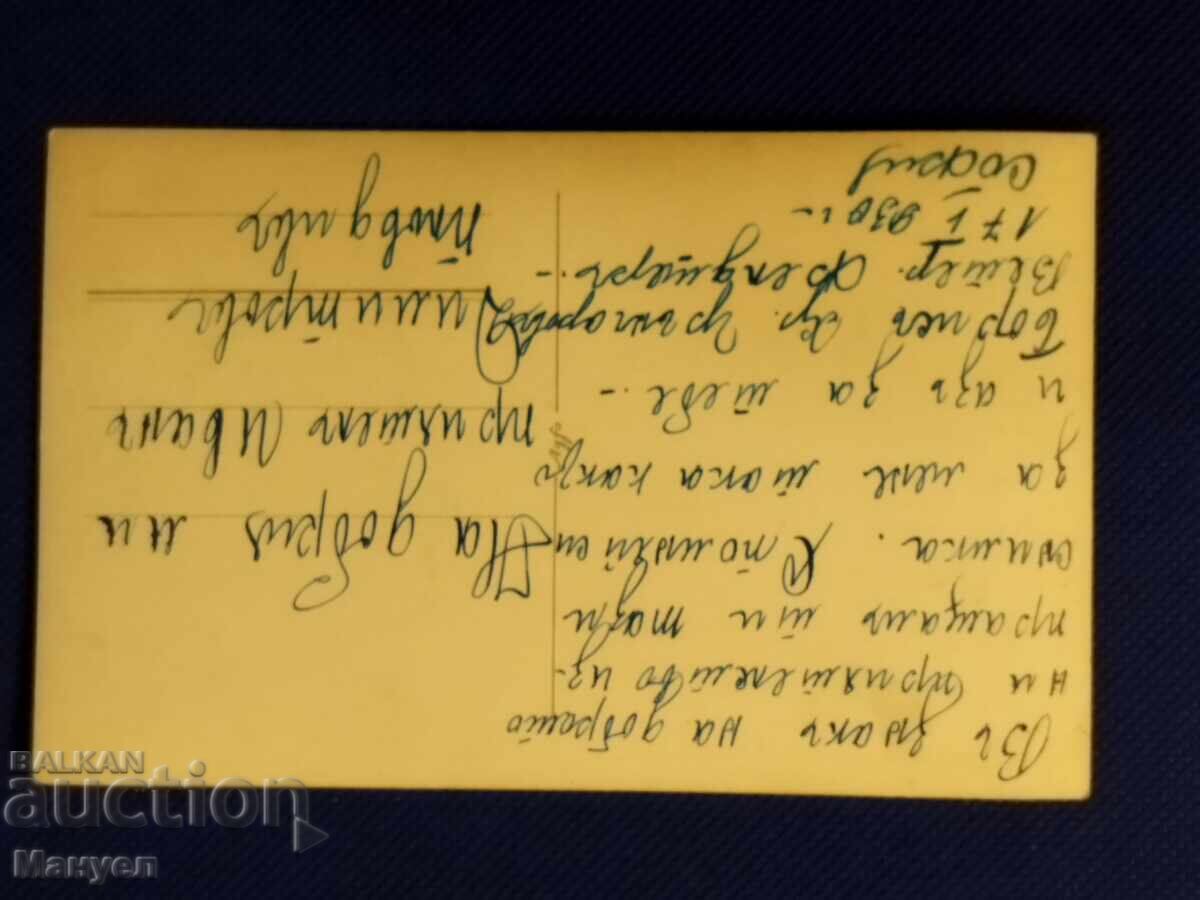 Въ знакъ на доброто
ни приятелство из-
пращамъ ти тази
снимка. Спомняй си
за мен така както
и азъ за тебе. -
Борисъ Хр. Григоровъ
Ветер. Фелдшеръ. -
17 I 930 г.
София
На добрия ми
приятель Иванъ
Димитровъ
Пловдивъ
BALKAN
auction
Мануел